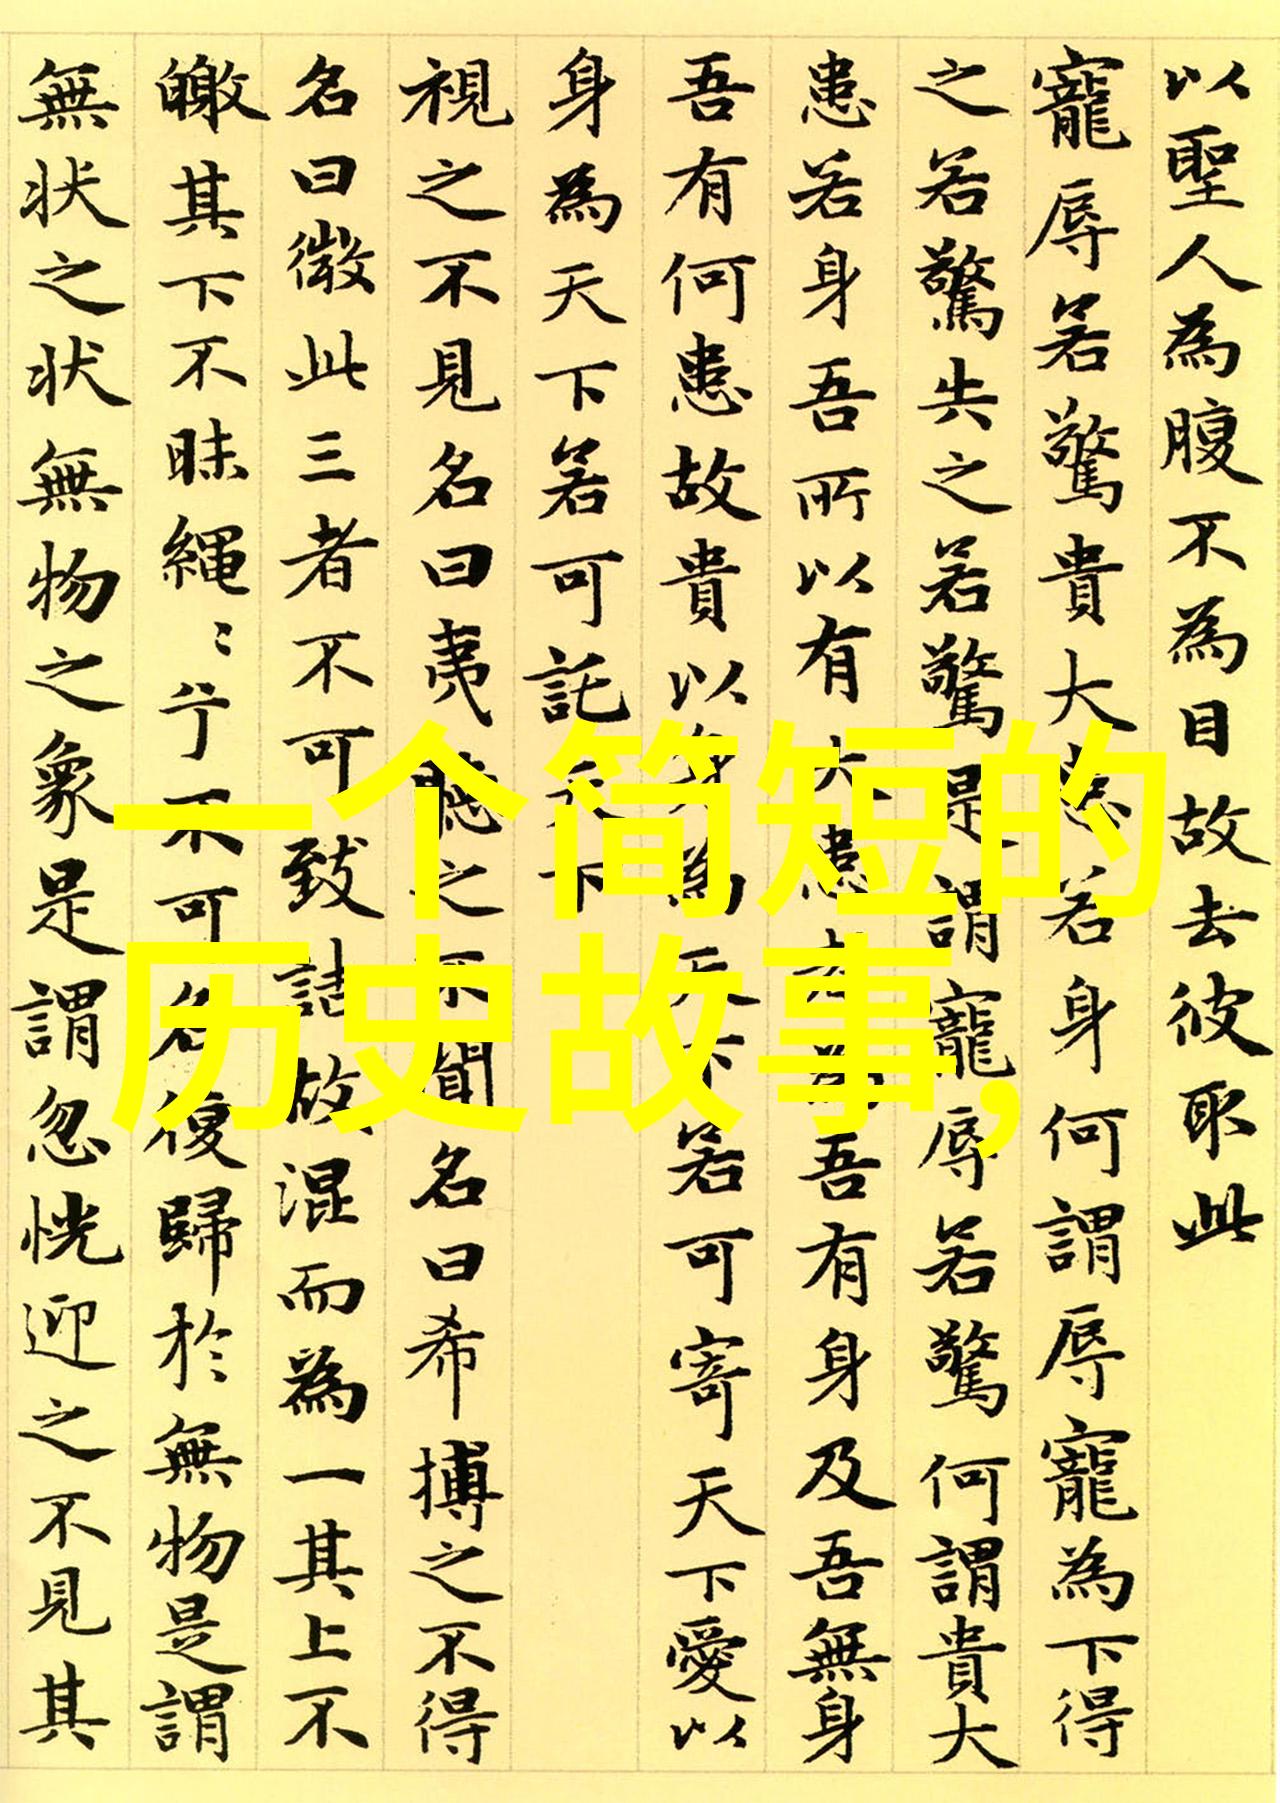 以聖人為腹不為目故去彼取此
寵辱若驚貴大患若身何謂辱寵為下得
之若驚失之若驚是謂寵辱若驚何謂貴大
患若身吾所以有大患者為吾有身及吾無身
吾有何患故貴以身為天下若可寄天下愛以
身為天下若可託天下
視之不見名曰夷聽之不聞名曰希搏之不得
名曰微此三者不可致詰故混而為一其上不
皦其下不昧繩〻兮不可名復歸於無物是謂
無状之状無物之象是謂忽恍迎之不見其
一个简短的
历史故事,